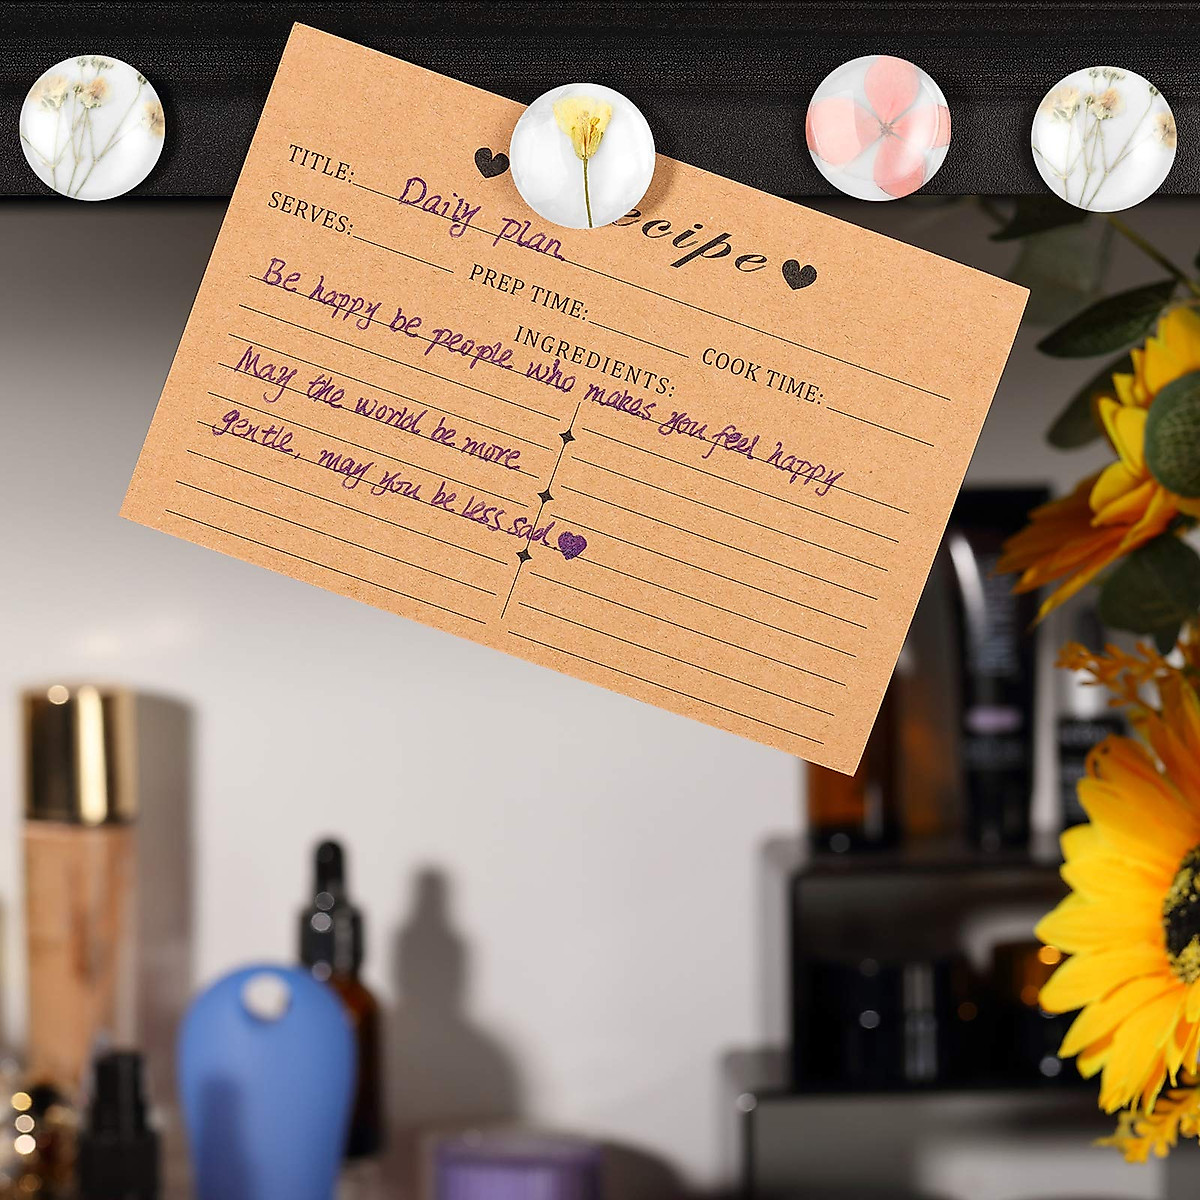 ecipe
TITLE: Daily plan.
SERVES: PREP TIME: COOK TIME:
INGREDIENTS:
Be happy be people who makes you feel happy
May the world be more
gentle, may you be less sad.